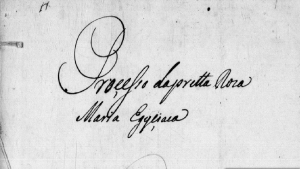 Proçeſso da pretta Roza
Maria Egyçiaca